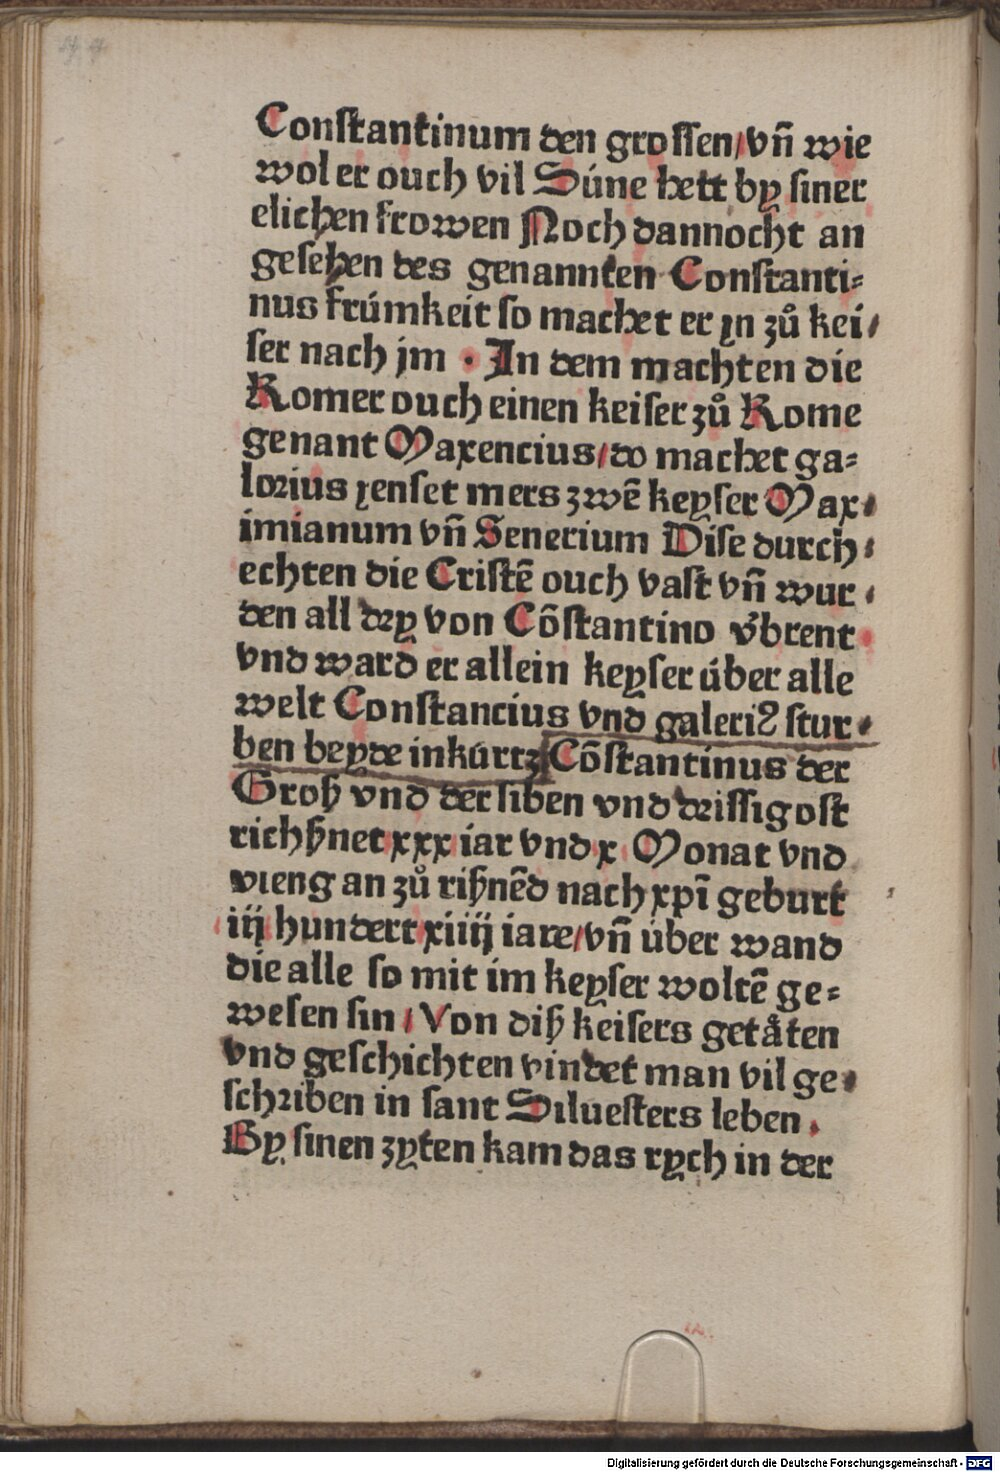 Constantinum den grossen/vn̄ wie
wol er ouch vil Súne hett by siner
elichen frowen Noch dannocht an
gesehen des genannten Constanti⸗
nus frúmkeit so machet er yn zů kei/
ser nach jm · In dem machten die
Romer ouch einen keiser zů Rome
genant Maxencius/do machet ga⸗
lorius yenset mers zwē keyser Max/
imianum vn̄ Senerium Dise durch/
echten die Cristē ouch vast vn̄ wur/
den all dry von Cōstantino v̓brent
vnd ward er allein keyser úber alle
welt Constancius vnd galeriꝰ stur/
ben beyde inkúrtz Cōstantinus der
Groß vnd der siben vnd drissigost
richßnet xxx iar vnd x Monat vnd
vieng an zů rißnēd nach xpī geburt
iij hundert xiiij iare/vn̄ úber wand
die alle so mit im keyser woltē ge⸗
wesen sin/Von diß keisers getåten
vnd geschichten vindet man vil ge/
schriben in sant Siluesters leben.
By sinen zyten kam das rych in der
Digitalisierung gefördert durch die Deutsche Forschungsgemeinschaft - DFG